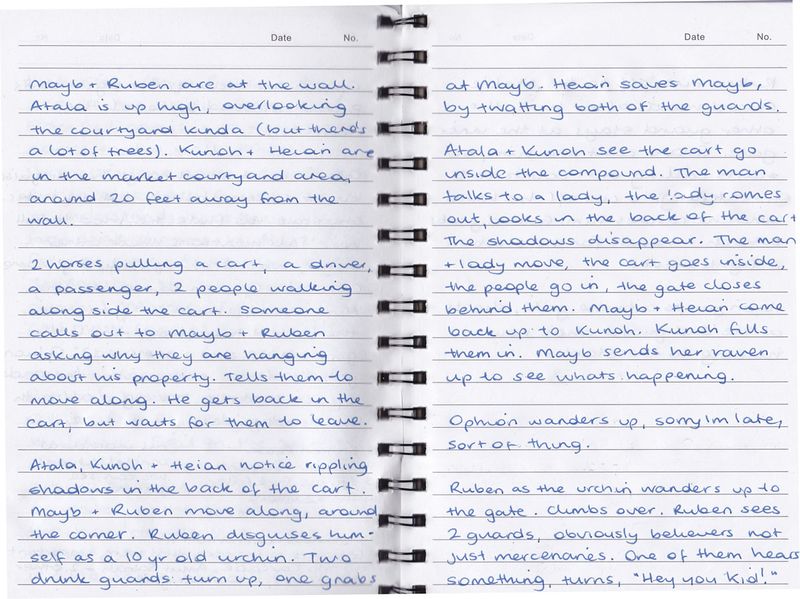 Date No.
Mayb + Ruben are at the wall.
Atala is up high, overlooking
the courtyard kinda (but there's
a lot of trees). Kunoh + Heian are
in the market courtyard area,
around 20 feet away from the
wall.
2 horses pulling a cart, a driver,
a passenger, 2 people walking
along side the cart. Someone
calls out to Mayb + Ruben
asking why they are hanging
about his property. Tells them to
move along. He gets back in the
cart, but waits for them to leave.
Atala, Kunoh + Heian notice rippling
shadows in the back of the cart.
Mayb + Ruben move along, around
the corner. Ruben disguises him-
self as a 10 yr old urchin. Two
drunk guards turn up, one grabs
Date No.
at Mayb. Heian saves Mayb,
by twatting both of the guards.
Atala + Kunoh see the cart go
inside the compound. The man
talks to a lady, the lady comes
out, looks in the back of the cart
The shadows disappear. The man
+ lady move, the cart goes inside,
the people go in, the gate closes
behind them. Mayb + Heian come
back up to Kunoh. Kunoh fills
them in. Mayb sends her raven
up to see whats happening.
Ophion wanders up, sorry Im late,
sort of thing.
Ruben as the urchin wanders up to
the gate. Climbs over. Ruben sees
2 guards, obviously believers not
just mercenaries. One of them hears
something, turns, "Hey you Kid!"